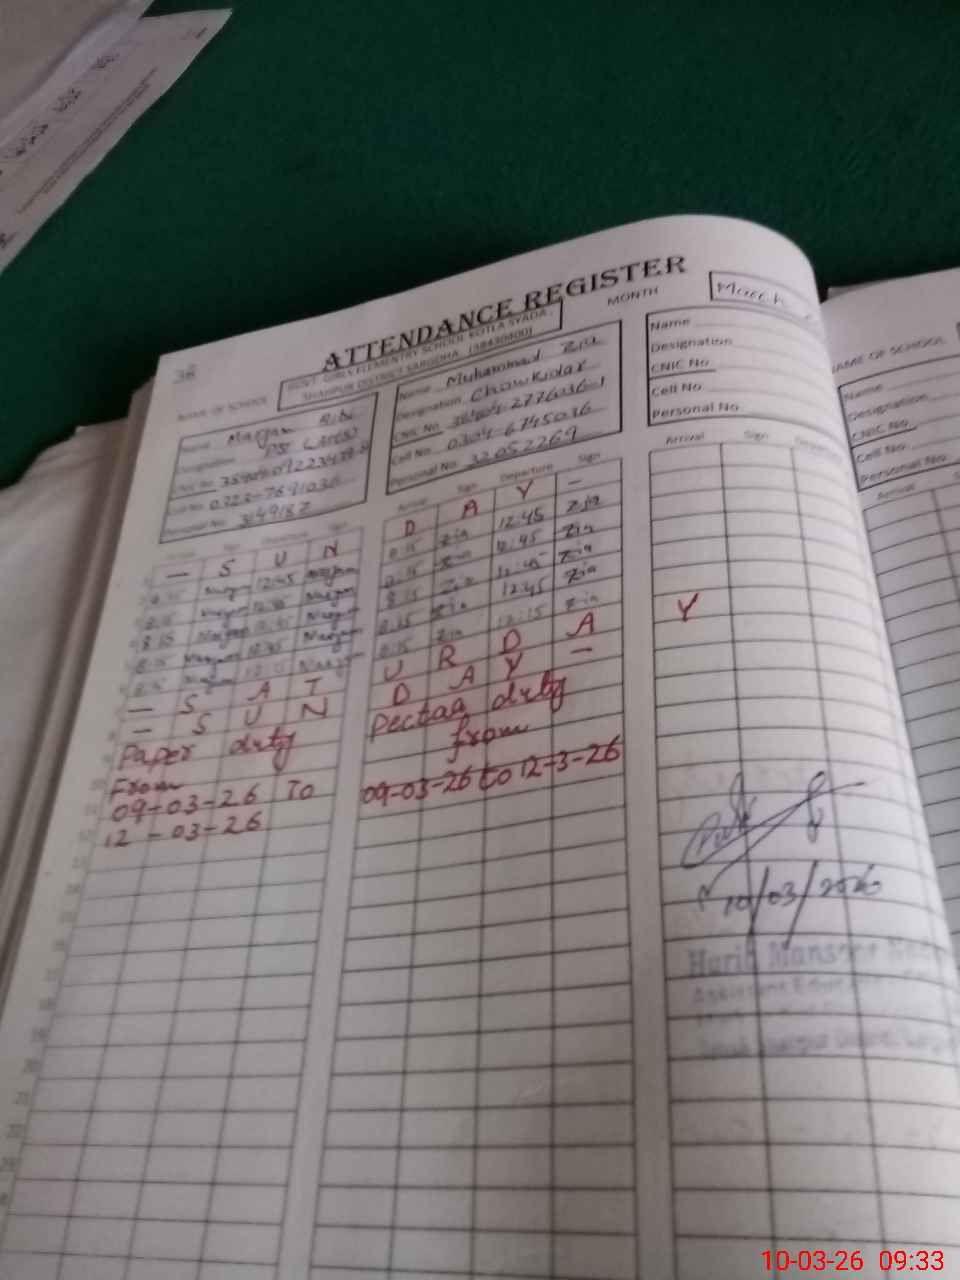 38
ATTENDANCE REGISTER
MONTH March
NAME OF SCHOOL
GOVT. GIRLS ELEMENTRY SCHOOL KOTLA SYADA,
SHAHPUR DISTRICT SARGODHA. (38430400)
Name Maryam Bibi
Designation
CNIC No
Cell No. 0323-7691036
Personal No.
Name Muhammad Zia
Designation Chowkidar
CNIC No
Cell No. 0304-6745036
Personal No. 32052269
Name
Designation
CNIC No
Cell No
Personal No
NAME OF SCHOOL
Name
Designation
CNIC No
Cell No
Personal No
Arrival Sign Departure Sign
Arrival Sign Departure Sign
Arrival Sign Departure
Arrival
— S U N D A Y —
8:15 Maryam 12:45 Maryam 8:15 Zia 12:45 Zia
8:15 Maryam 12:45 Maryam 8:15 Zia 12:45 Zia
8:15 Maryam 12:45 Maryam 8:15 Zia 12:45 Zia
8:15 Maryam 12:45 Maryam 8:15 Zia 12:45 Zia
8:15 Maryam 12:15 Maryam 8:15 Zia 12:15 Zia
— S A T U R D A Y
— S U N D A Y —
Paper duty
From
09-03-26 To
12-03-26
Pectaa duty
from
09-03-26 to 12-3-26
10/03/2026
Mansoor
10-03-26 09:33